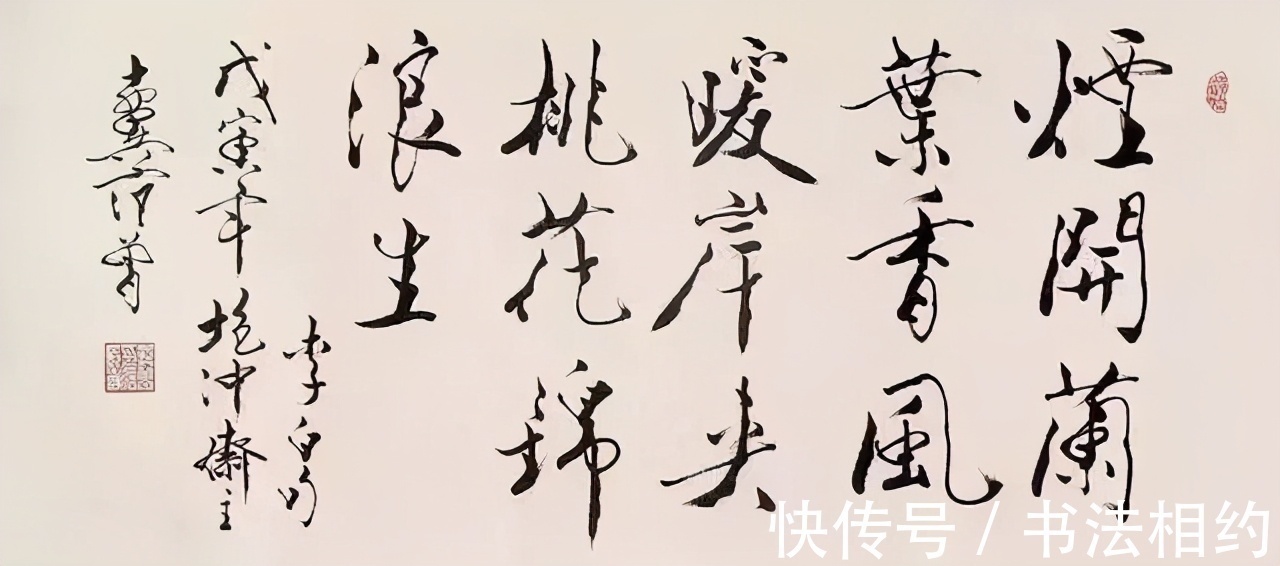 煙開蘭
葉香風
暖岸夹
桃花錦
浪生
李白句
戊寅年抱冲齋主
十翼范曾
快传号 / 书法相约